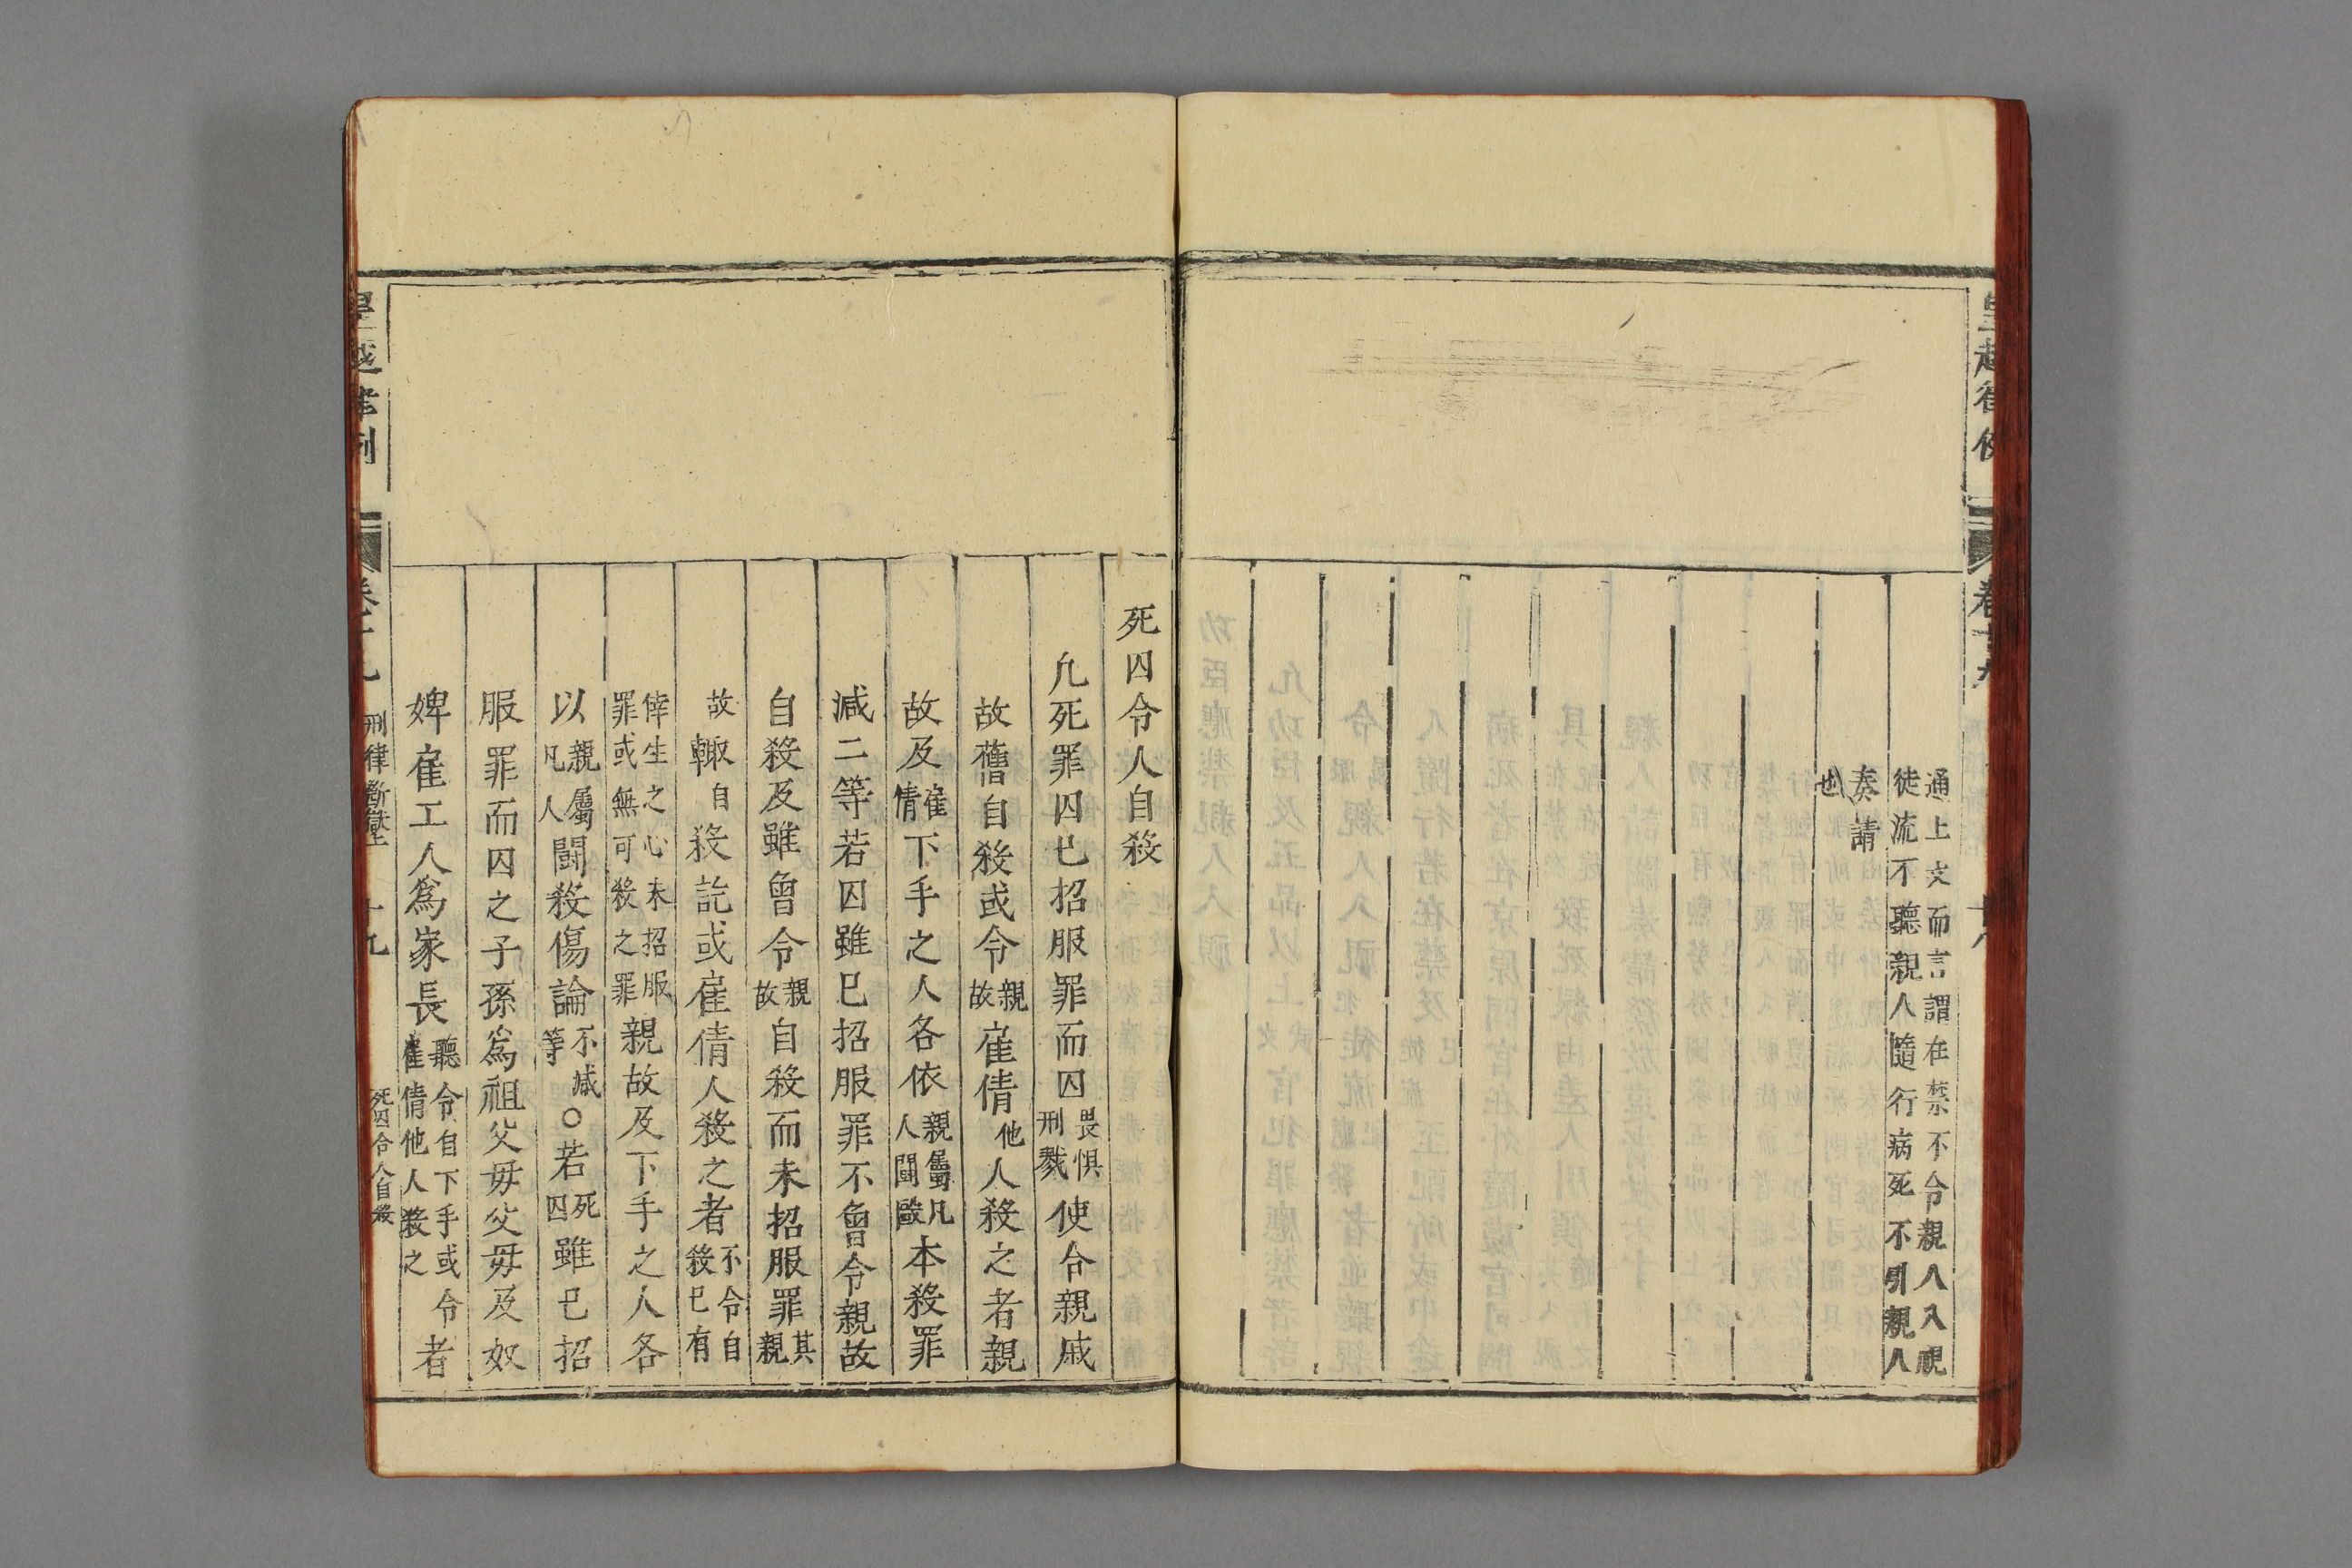 通上文而言謂在禁不令親人入視
徒流不聽親人隨行病死不引親人
奏請
也
死囚令人自殺
凢死罪囚已招服罪而囚畏惧刑戮使令親戚
故舊自殺或令親故雇倩他人殺之者親
故及雇倩下手之人各依親屬凡人鬪毆本殺罪
减二等若囚雖已招服罪不曾令親故
自殺及雖曾令親故自殺而未招服罪其親
故輙自殺訖或雇倩人殺之者不令自殺已有
倖生之心未招服罪或無可殺之罪親故及下手之人各
以親屬凡人鬪殺傷論不减等○若死囚雖已招
服罪而囚之子孫爲祖父母父母及奴
婢雇工人爲家長聽令自下手或令雇倩他人殺之者
皇越律例
卷十九
刑律斷獄上
死囚令人自殺
十九